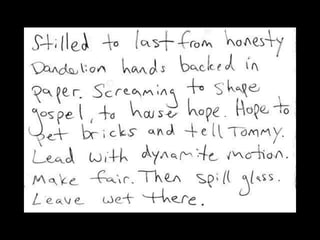 Stilled to last from honesty
Dandelion hands backed in
paper. Screaming to shape
gospel, to house hope. Hope to
pet bricks and tell Tommy.
Lead with dynamite motion.
Make fair. Then spill glass.
Leave wet there.